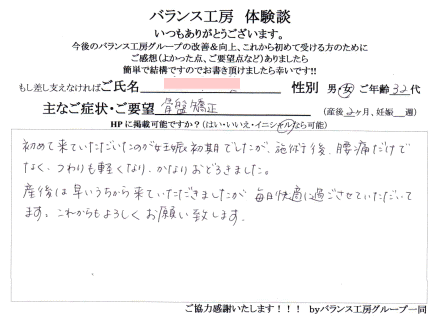 バランス工房 体験談
いつもありがとうございます。
今後のバランス工房グループの改善&向上、これから初めて受ける方のために
ご感想(よかった点、ご要望点など)ありましたら
簡単で結構ですのでお書き頂けましたら幸いです!!
もし差し支えなければご氏名 性別 男・女 ご年齢 32代
主なご症状・ご要望 骨盤矯正 (産後2ヶ月、妊娠 週)
HPに掲載可能ですか?(はい・いいえ・イニシャルなら可能)
初めて来ていただいたのが妊娠初期でしたが、施術後、腰痛だけで
なく、つわりも軽くなり、かなりおどろきました。
産後は早いうちから来ていただきましたが、毎日快適に過ごさせていただいて
ます。これからもよろしくお願い致します。
ご協力感謝いたします!!! byバランス工房グループ一同